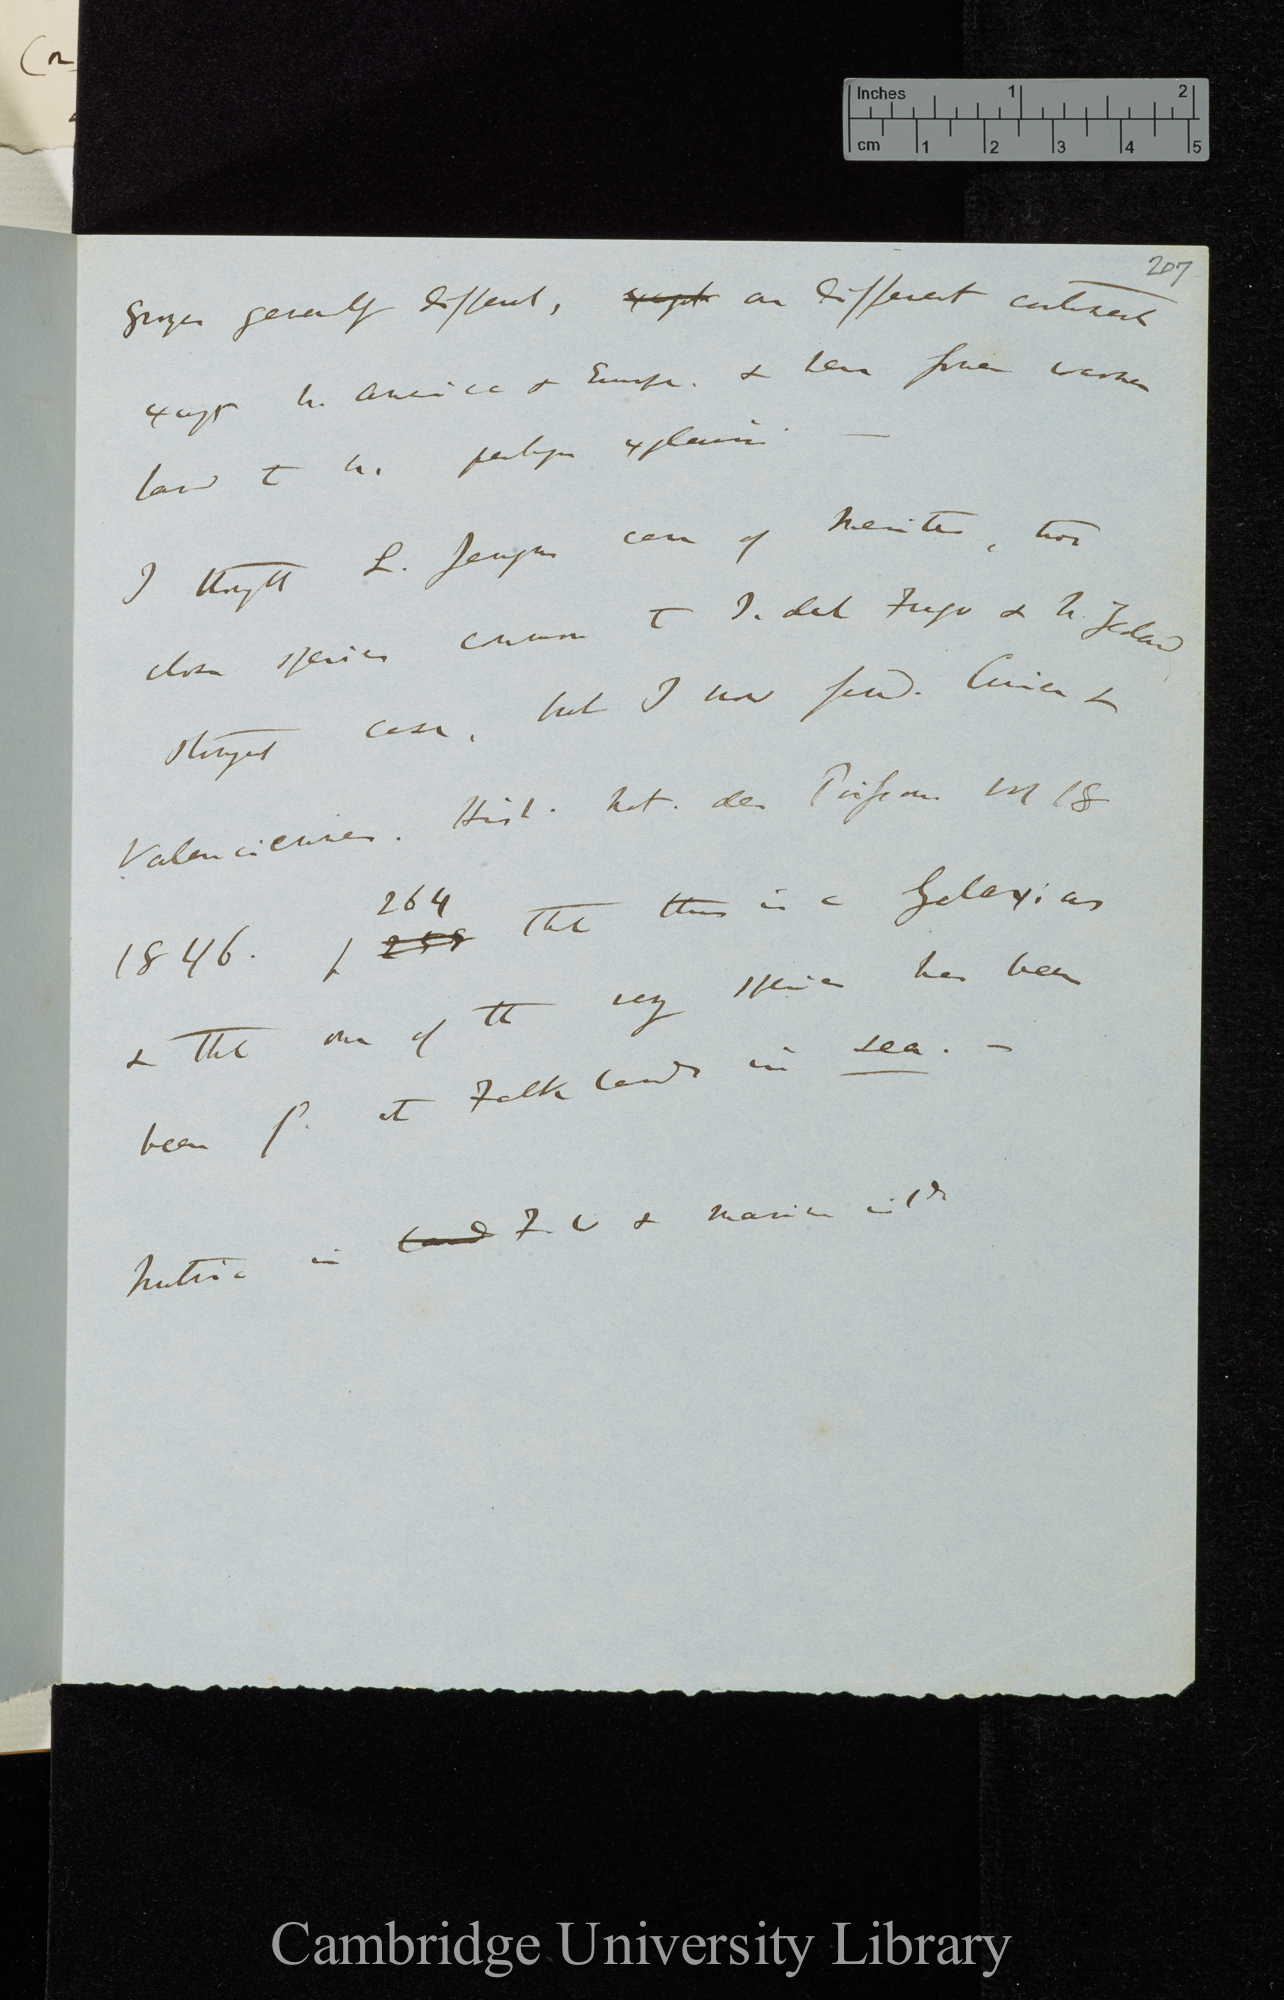 207
Groups generally different, ~~except~~ on different continents
except N. America & Europe. & here former warmer
land to N. perhaps explains —
I thought L. Jenyns case of Mesites, two
close species common to T. del Fuego & N. Zealand
strongest case, but I now find. Cuvier &
Valenciennes. Hist. Nat. des Poissons Vol 18
1846. p ~~258~~ 264 that this is a Galaxias
& that one of the very species has been
been f. at Falklands in sea. —
Nutria in ~~land~~ F. W & marine isl
Inches 1 2
cm 1 2 3 4 5
Cambridge University Library